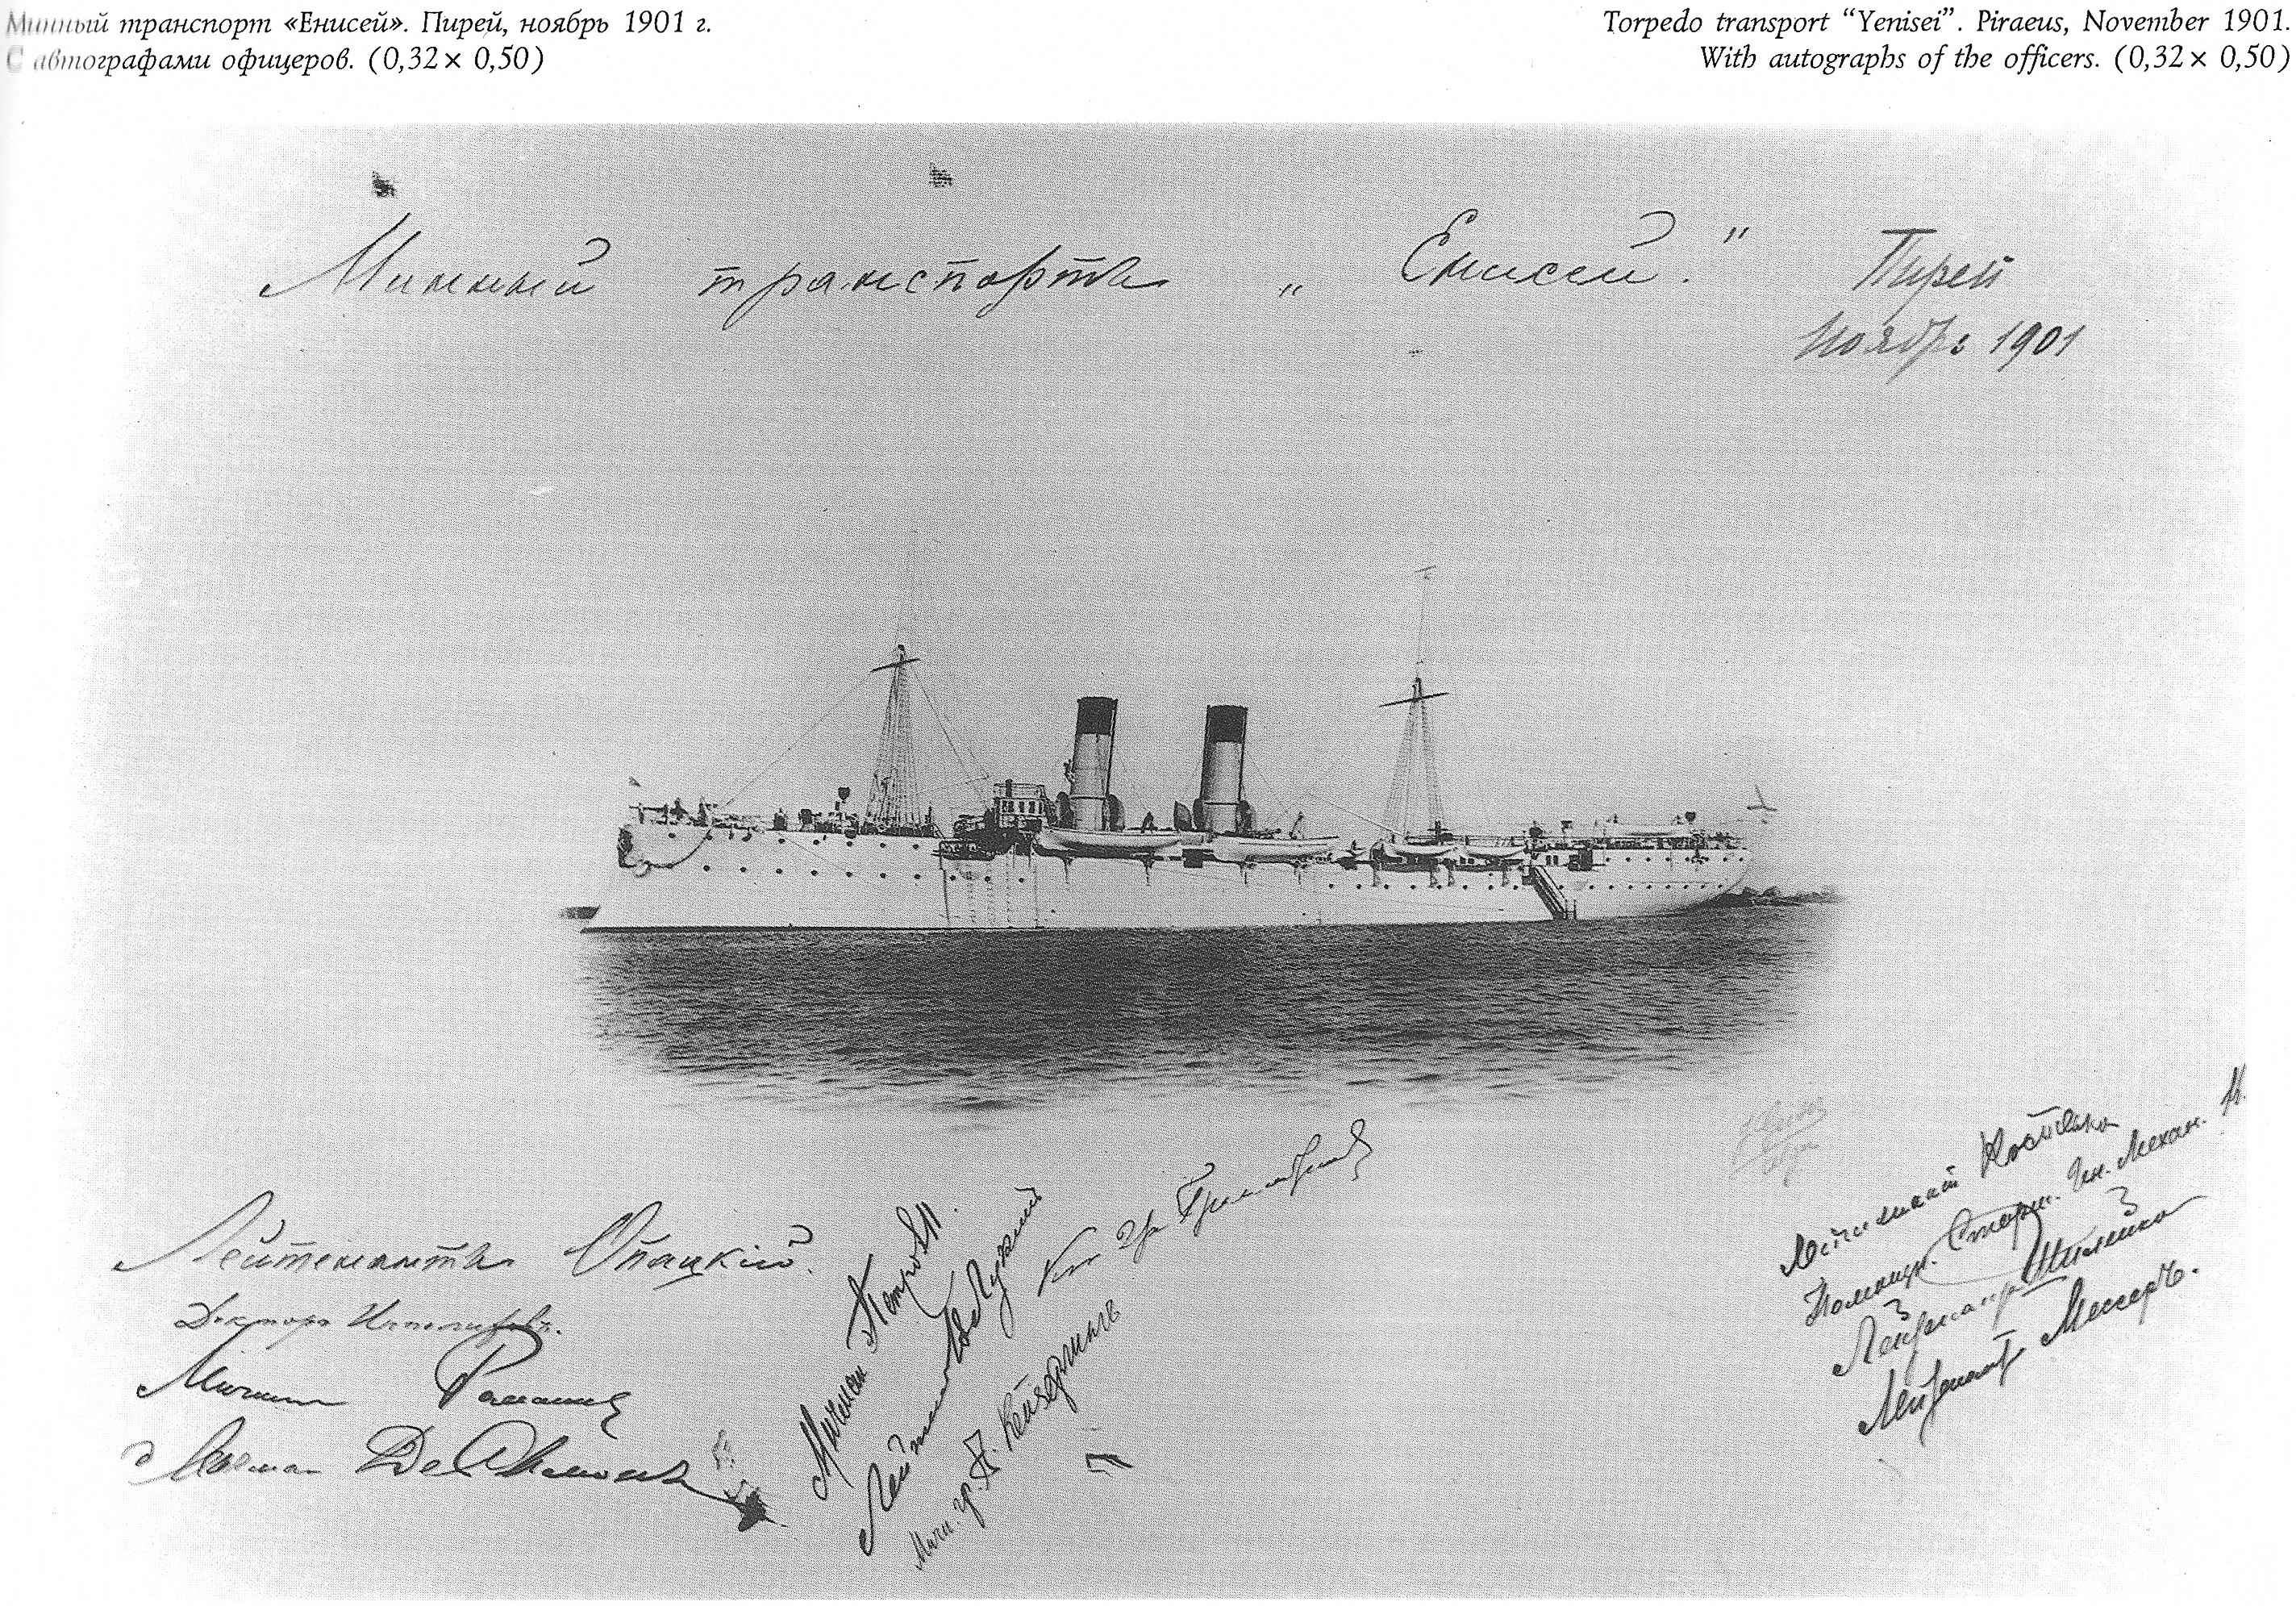 Минный транспорт «Енисей». Пирей, ноябрь 1901 г.
С автографами офицеров. (0,32× 0,50)
Torpedo transport “Yenisei”. Piraeus, November 1901.
With autographs of the officers. (0,32× 0,50)
Минный транспортъ „Енисей.“
Пирей
Ноябрь 1901
Лейтенантъ Опацкій.
Докторъ
Мичман
Мичман Петровъ II.
Лейтенант
Мичм. гр. А. Кейзерлингъ
Лейтенант
Помощн. Старш. Ин. Механ.
Лейтенант
Лейтенант Мессеръ.